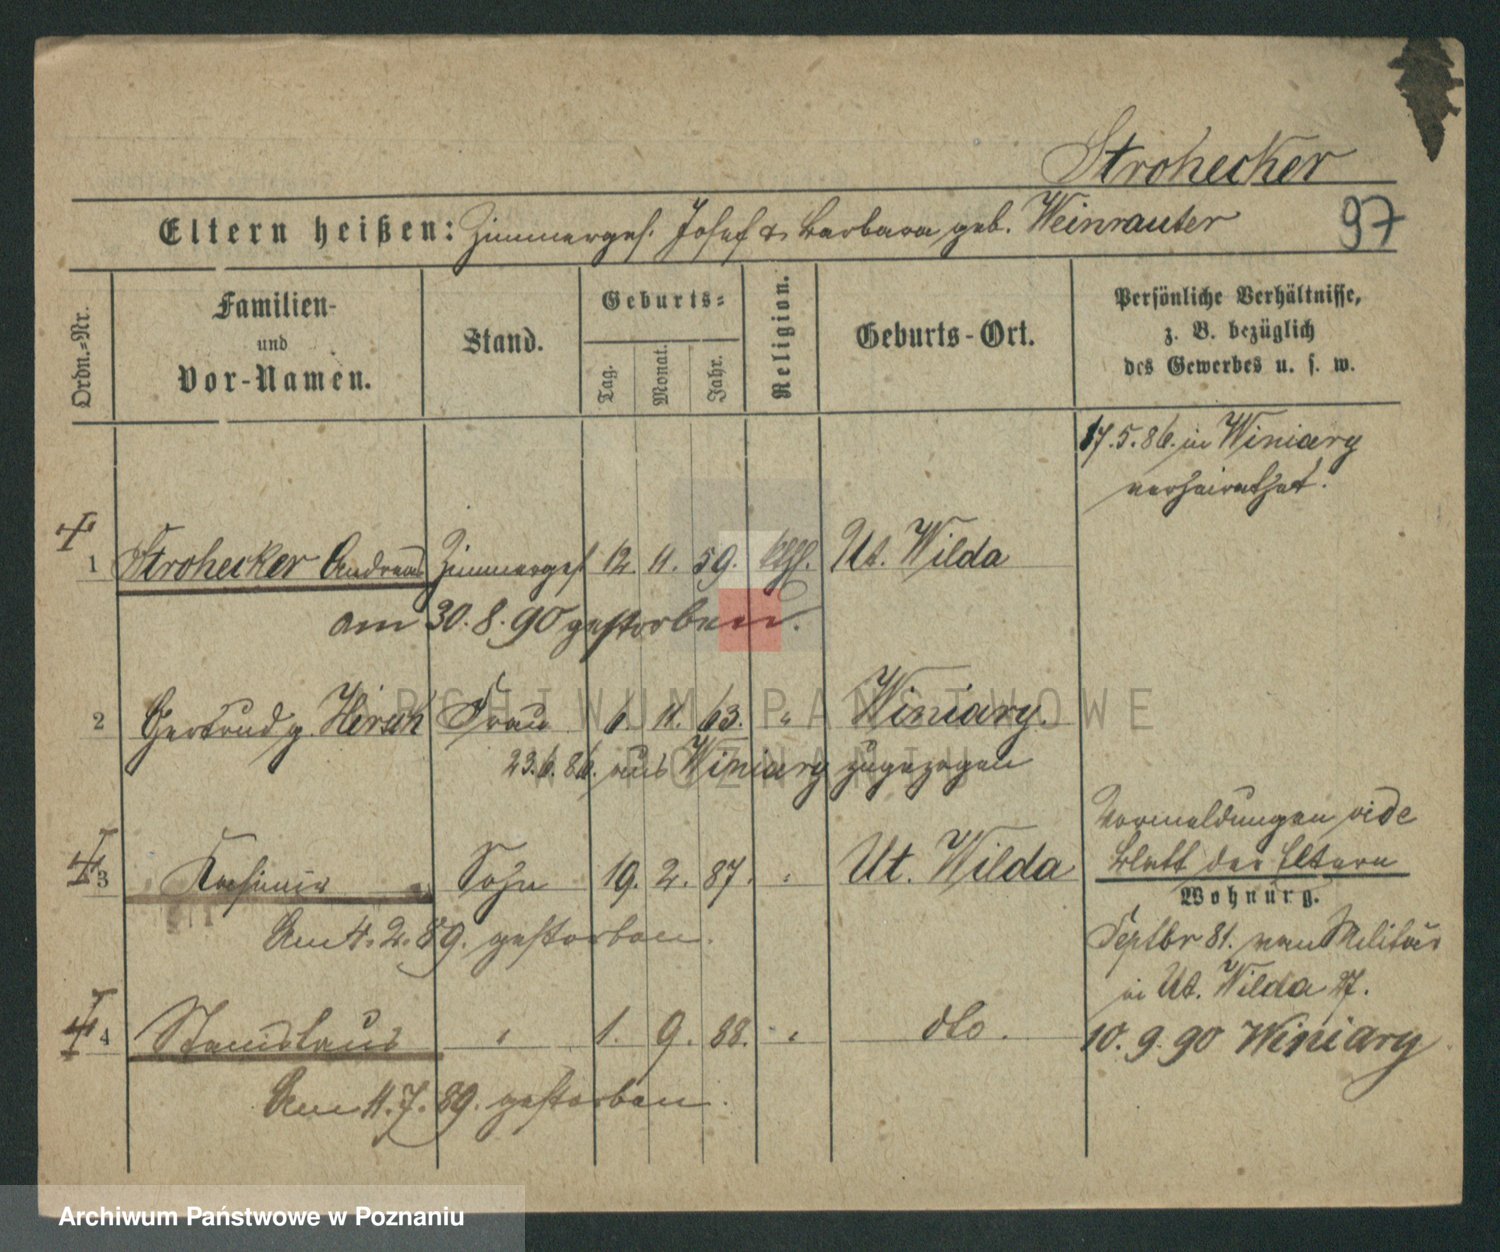 Strohecker
Eltern heißen: Zimmerges. Josef & Barbara geb. Weinrauter
97
Ordn.-Nr.
Familien-
und
Vor-Namen.
Stand.
Geburts-
Tag.
Monat.
Jahr.
Religion.
Geburts-Ort.
Persönliche Verhältnisse,
z. B. bezüglich
des Gewerbes u. s. w.
17.5.86. in Winiary
verheirathet.
1 Strohecker Andreas Zimmerges. 12. 11. 59. kthl. Ut. Wilda
am 30.8.90 gestorben.
2 Gertrud g. Hirsch Frau 6. 11. 63. " Winiary.
23.6.86. aus Winiary zugezogen
Vormeldungen vide
Blatt der Eltern
3 Kasimir Sohn 19. 2. 87. " Ut. Wilda
Wohnung.
Am 4.2.89. gestorben.
Septbr 81. vom Militär
in Ut. Wilda 27.
4 Stanislaus " 1. 9. 88. " dto.
10.9.90 Winiary
Am 11.7.89. gestorben.
ARCHIWUM PAŃSTWOWE
W POZNANIU
Archiwum Państwowe w Poznaniu